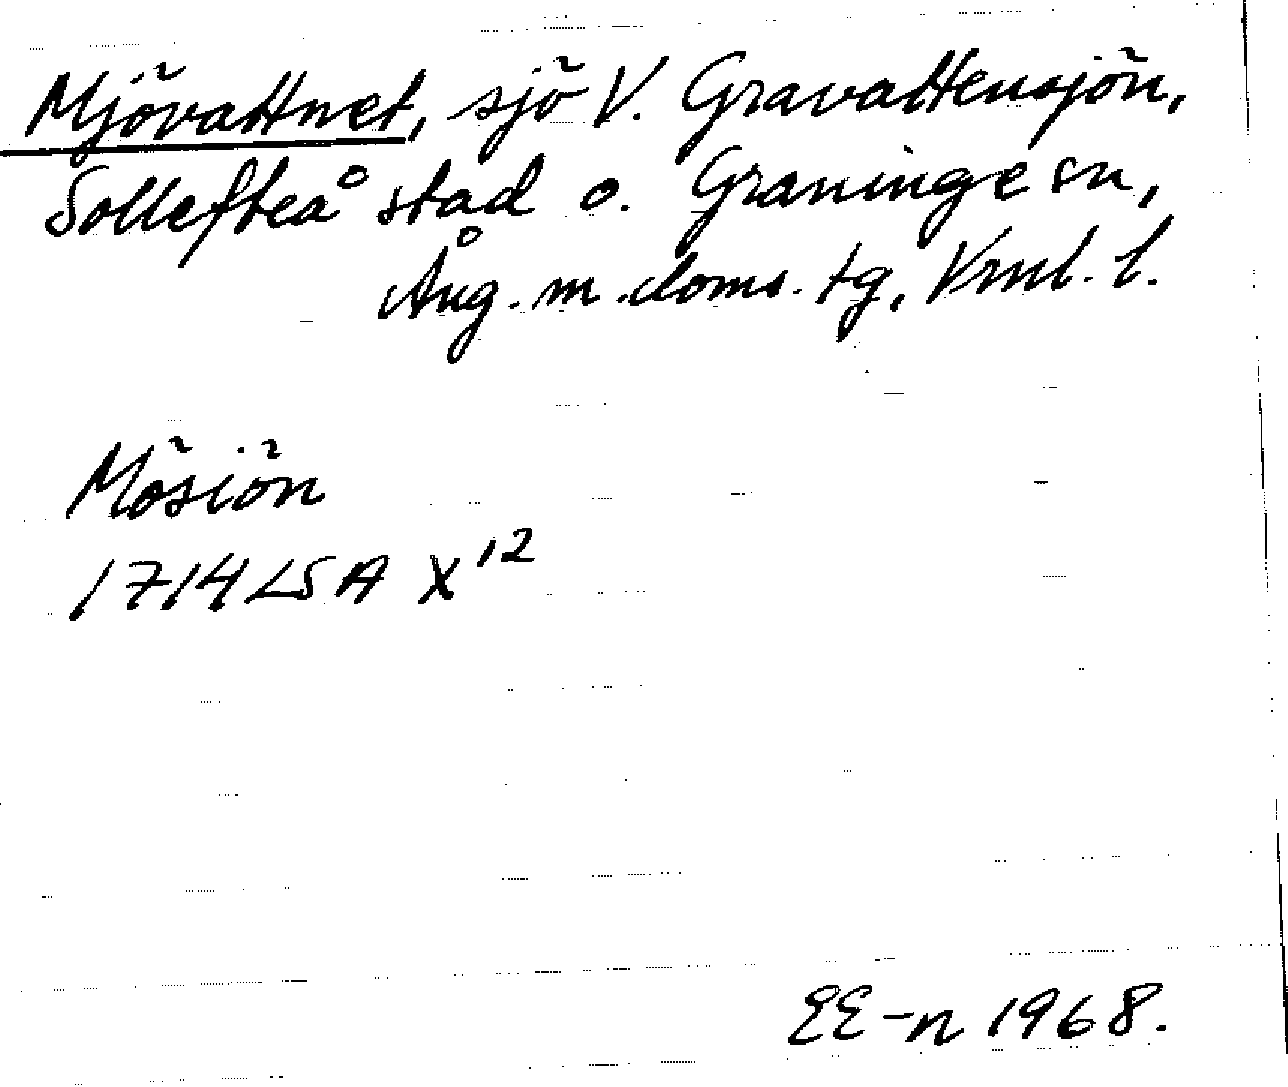 Mjövattnet, sjö V. Gravattensjön,
Sollefteå stad o. Graninge sn,
Ång. m. doms. tg, Vrnl. l.
Mösiön
1714 LSA X12
EE-n 1968.